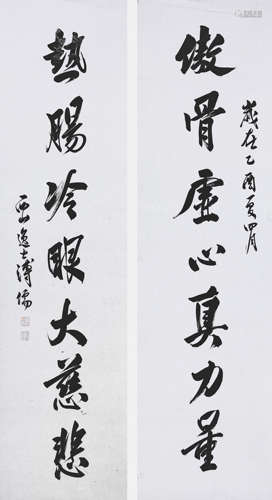 傲骨虛心真力量
歲在乙酉夏四月
熱腸冷眼大慈悲
西山逸士溥儒